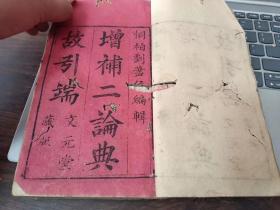 桐柏劉編輯
增補二論典
故引端
文元堂
藏板